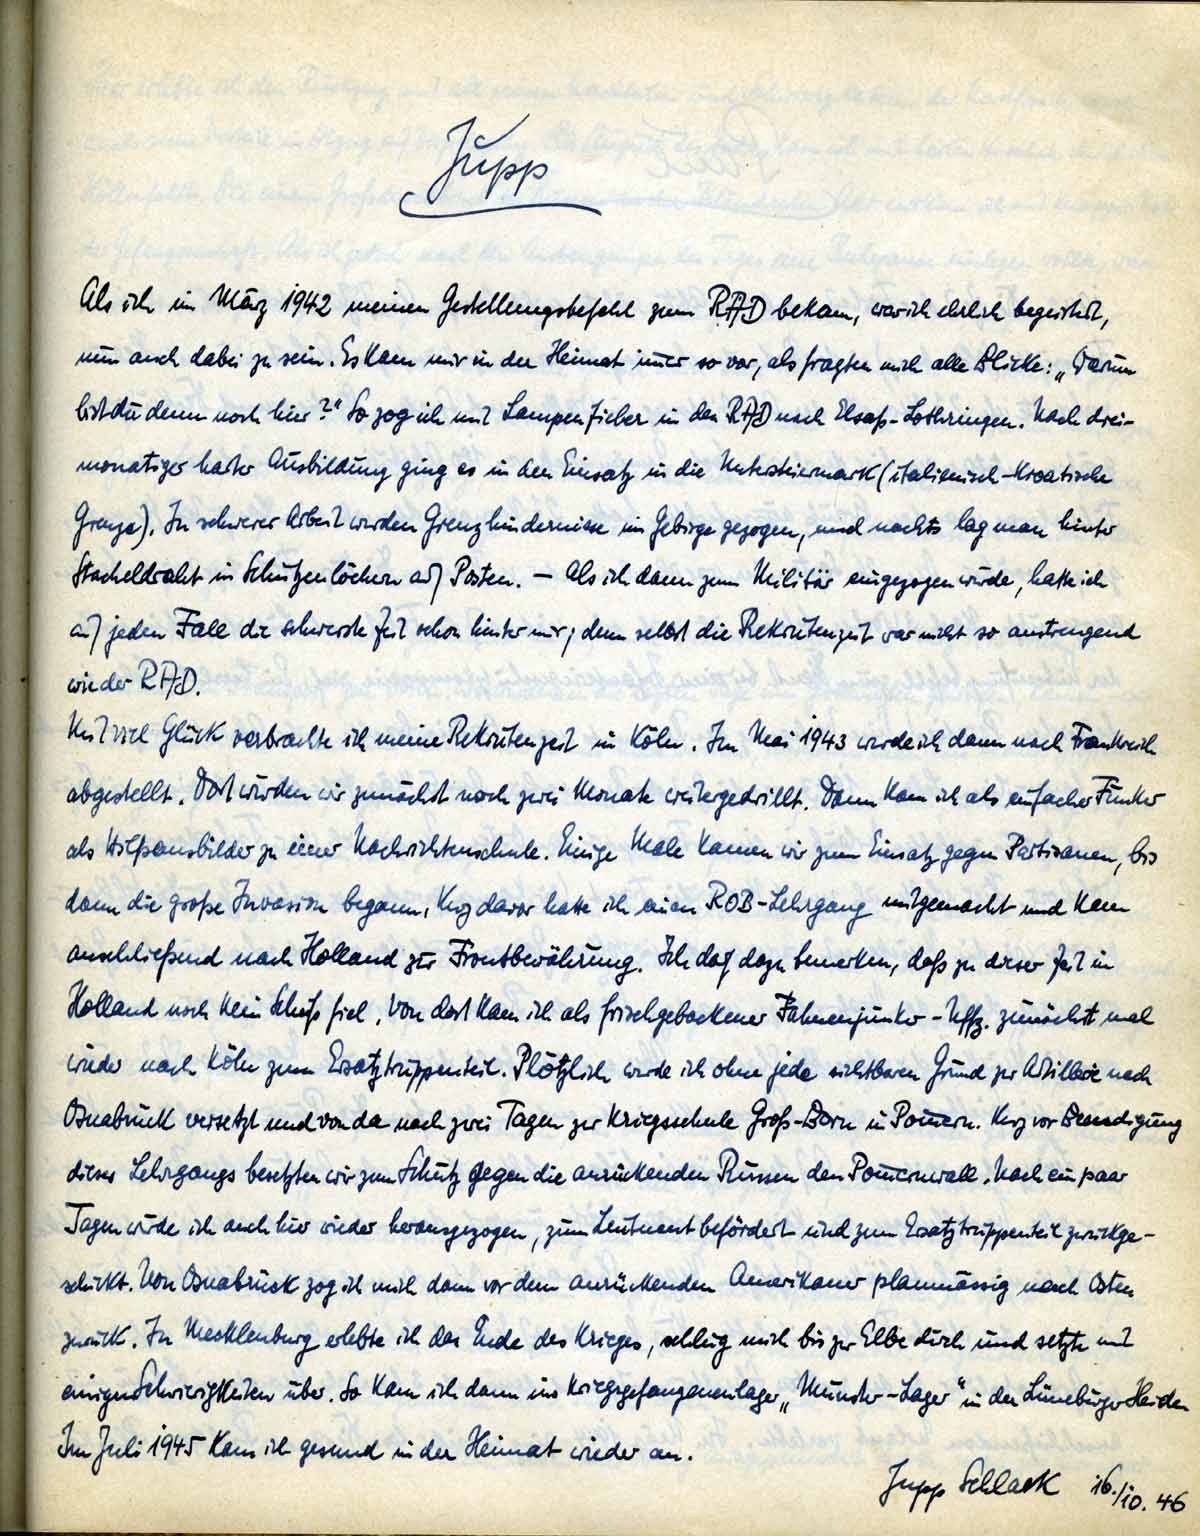 Jupp
Als ich im März 1942 meinen Gestellungsbefehl zum RAD bekam, war ich ehrlich begeistert,
nun auch dabei zu sein. Es kam mir in der Heimat immer so vor, als fragten mich alle Blicke: „Warum
bist du denn noch hier?" So zog ich mit Lampenfieber in den RAD nach Elsaß-Lothringen. Nach drei-
monatiger harter Ausbildung ging es in den Einsatz in die Untersteiermark (italienisch-kroatische
Grenze). In schwerer Arbeit wurden Grenzhindernisse im Gebirge gezogen, und nachts lag man hinter
Stacheldraht in Schützenlöchern auf Posten. – Als ich dann zum Militär eingezogen wurde, hatte ich
auf jeden Fall die schwerste Zeit schon hinter mir; denn selbst die Rekrutenzeit war nicht so anstrengend
wie der RAD.
Mit viel Glück verbrachte ich meine Rekrutenzeit in Köln. Im Mai 1943 wurde ich dann nach Frankreich
abgestellt. Dort wurden wir zunächst noch zwei Monate weitergedrillt. Dann kam ich als einfacher Funker
als Hilfsausbilder zu einer Nachrichtenschule. Einige Male kamen wir zum Einsatz gegen Partisanen, bis
dann die große Invasion begann. Kurz davor hatte ich einen ROB-Lehrgang mitgemacht und kam
anschließend nach Holland zur Frontbewährung. Ich darf dazu bemerken, daß zu dieser Zeit in
Holland noch kein Schuß fiel. Von dort kam ich als frischgebackener Fahnenjunker-Uffz. zunächst mal
wieder nach Köln zum Ersatztruppenteil. Plötzlich wurde ich ohne jede sichtbaren Grund zur Artillerie nach
Osnabrück versetzt und von da nach zwei Tagen zur Kriegsschule Groß-Born in Pommern. Kurz vor Beendigung
dieses Lehrgangs besetzten wir zum Schutz gegen die anrückenden Russen den Pommernwall. Nach ein paar
Tagen wurde ich auch hier wieder herausgezogen, zum Leutnant befördert und zum Ersatztruppenteil zurückge-
schickt. Von Osnabrück zog ich mich dann vor dem anrückenden Amerikaner planmässig nach Osten
zurück. In Mecklenburg erlebte ich das Ende des Krieges, schlug mich bis zur Elbe durch und setzte mit
einigen Schwierigkeiten über. So kam ich dann ins Kriegsgefangenenlager „Munster-Lager" in der Lüneburger Heiden
Im Juli 1945 kam ich gesund in der Heimat wieder an.
Jupp Schlack 16./10. 46